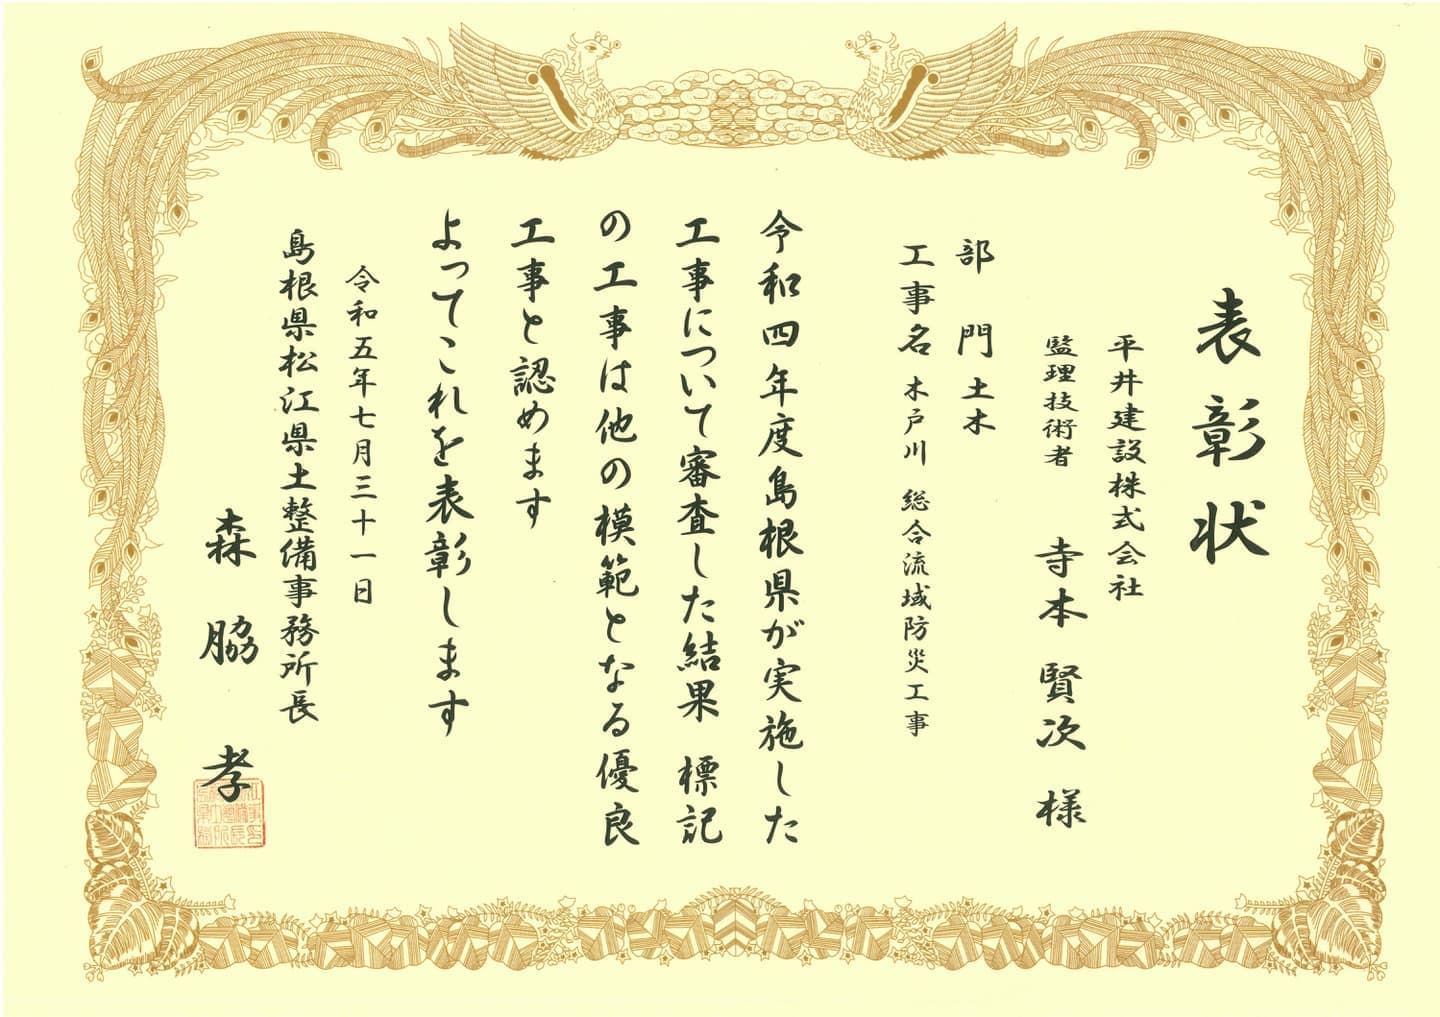 表彰状
平井建設株式会社
監理技術者 寺本 賢次 様
部門 土木
工事名 木戸川 総合流域防災工事
令和四年度島根県が実施した
工事について審査した結果 標記
の工事は他の模範となる優良
工事と認めます
よってこれを表彰します
令和五年七月三十一日
島根県松江県土整備事務所長
森脇 孝